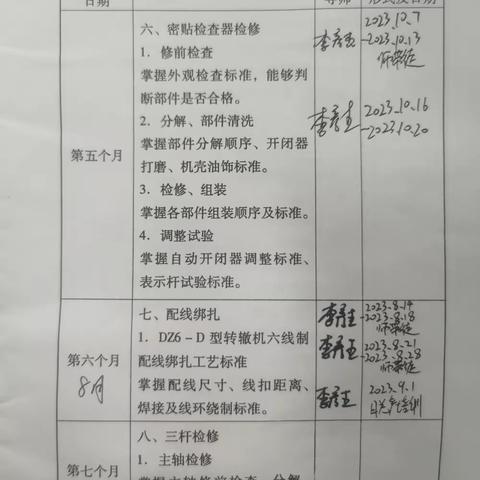 日期
导师
形式及日期
第五个月
六、密贴检查器检修
1. 修前检查
掌握外观检查标准，能够判
断部件是否合格。
2. 分解、部件清洗
掌握部件分解顺序、开闭器
打磨、机壳油饰标准。
3. 检修、组装
掌握各部件组装顺序及标准。
4. 调整试验
掌握自动开闭器调整标准、
表示杆试验标准。
2023.10.7
-2023.10.13
师带徒
2023.10.16
-2023.10.20
第六个月
8月
七、配线绑扎
1. DZ6-D 型转辙机六线制
配线绑扎工艺标准
掌握配线尺寸、线扣距离、
焊接及线环绕制标准。
2023.8.14
-2023.8.18
师带徒
2023.8.21
-2023.8.28
师带徒
2023.9.1
第七个月
八、三杆检修
1. 主轴检修